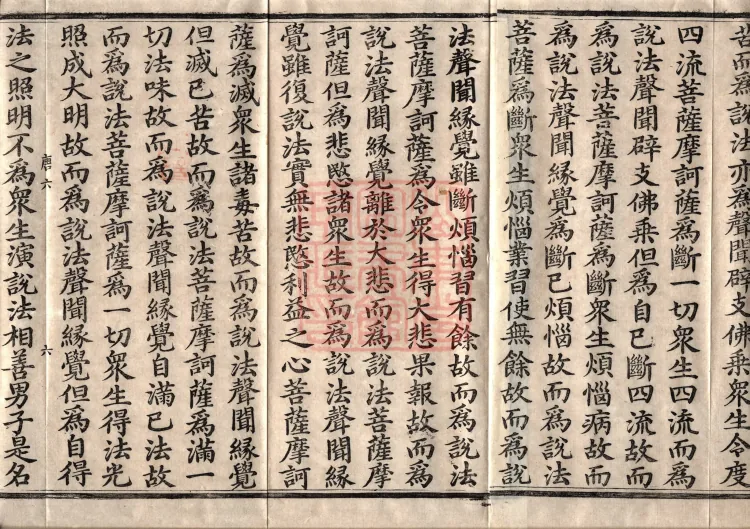 苦而爲說法亦爲聲聞辟支佛乘衆生令度
四流菩薩摩訶薩爲斷一切衆生四流而爲
說法聲聞辟支佛乘但爲自己斷四流故而
爲說法菩薩摩訶薩爲斷衆生煩惱病故而
爲說法聲聞緣覺爲斷己煩惱故而爲說法
菩薩爲斷衆生煩惱業習使無餘故而爲說
法聲聞緣覺雖斷煩惱習有餘故而爲說法
菩薩摩訶薩爲令衆生得大悲果報故而爲
說法聲聞緣覺離於大悲而爲說法菩薩摩
訶薩但爲悲愍諸衆生故而爲說法聲聞緣
覺雖復說法實無悲愍利益之心菩薩摩訶
薩爲滅衆生諸毒苦故而爲說法聲聞緣覺
但滅己苦故而爲說法菩薩摩訶薩爲滿一
切法味故而爲說法聲聞緣覺自滿己法故
而爲說法菩薩摩訶薩爲一切衆生得法光
唐六 六
照成大明故而爲說法聲聞緣覺但爲自得
法之照明不爲衆生演說法相善男子是名